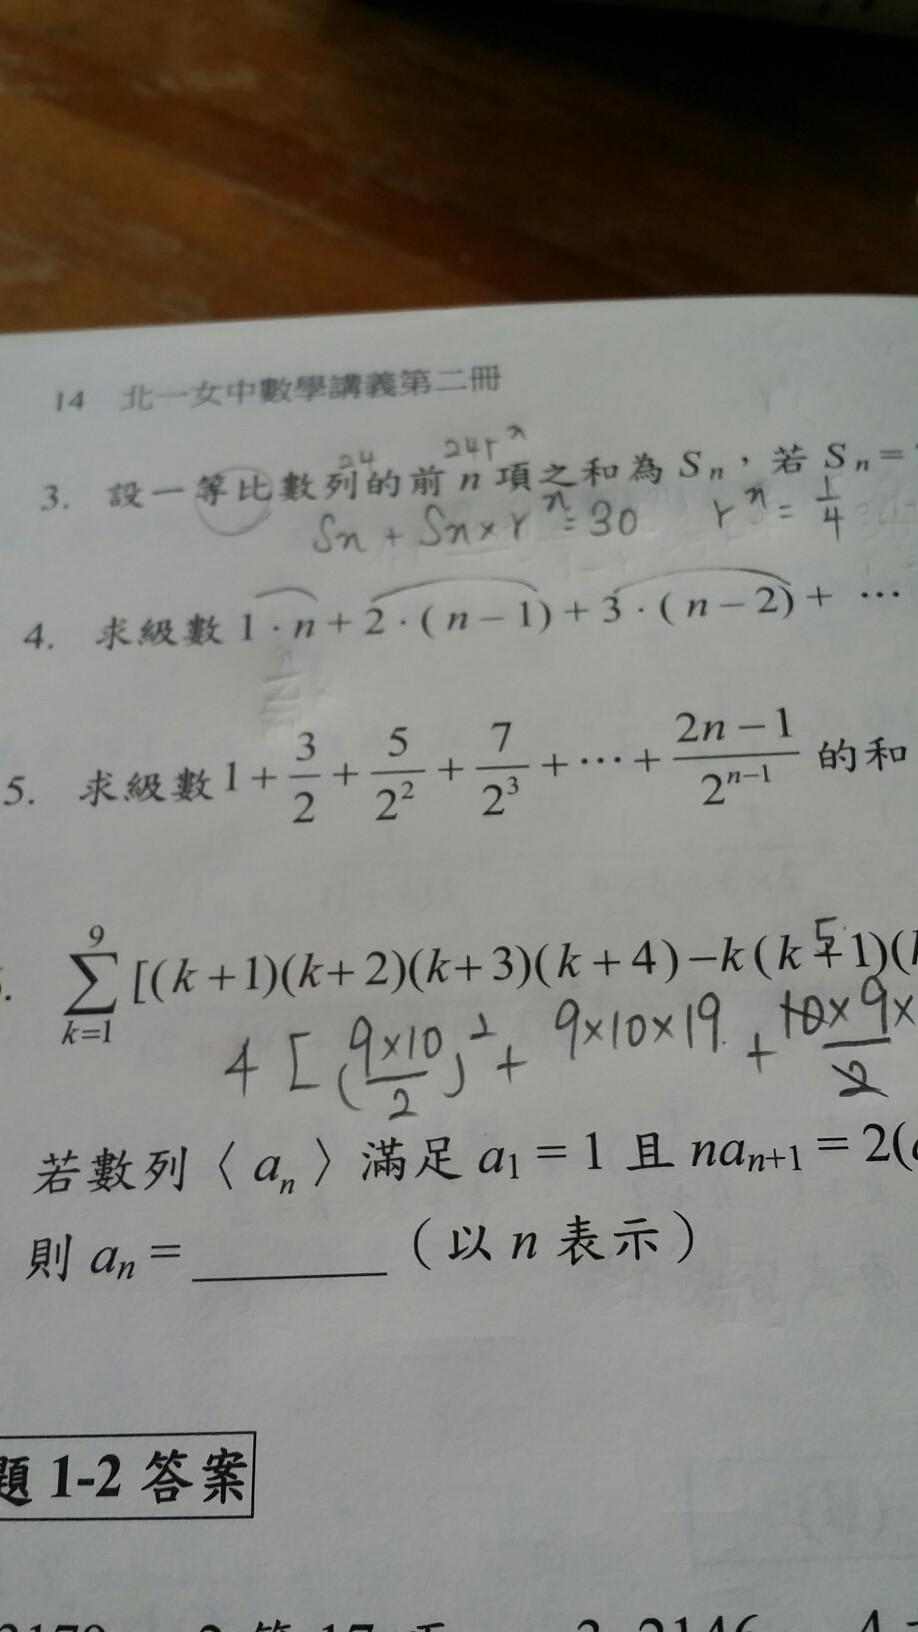 14 北一女中數學講義第二冊
24 24r^n
3. 設一等比數列的前 n 項之和為 Sₙ，若 Sₙ =
Sn + Sn × r^n = 30 r^n = 1/4
4. 求級數 1·n + 2·(n−1) + 3·(n−2) + …
5. 求級數 1 + 3/2 + 5/2² + 7/2³ + … + (2n−1)/2^(n−1) 的和
∑_{k=1}^{9} [(k+1)(k+2)(k+3)(k+4)−k(k+1)(
4[(9×10/2)² + 9×10×19 + 10×9×
若數列〈aₙ〉滿足 a₁ = 1 且 naₙ₊₁ = 2(
則 aₙ = ______（以 n 表示）
題 1-2 答案